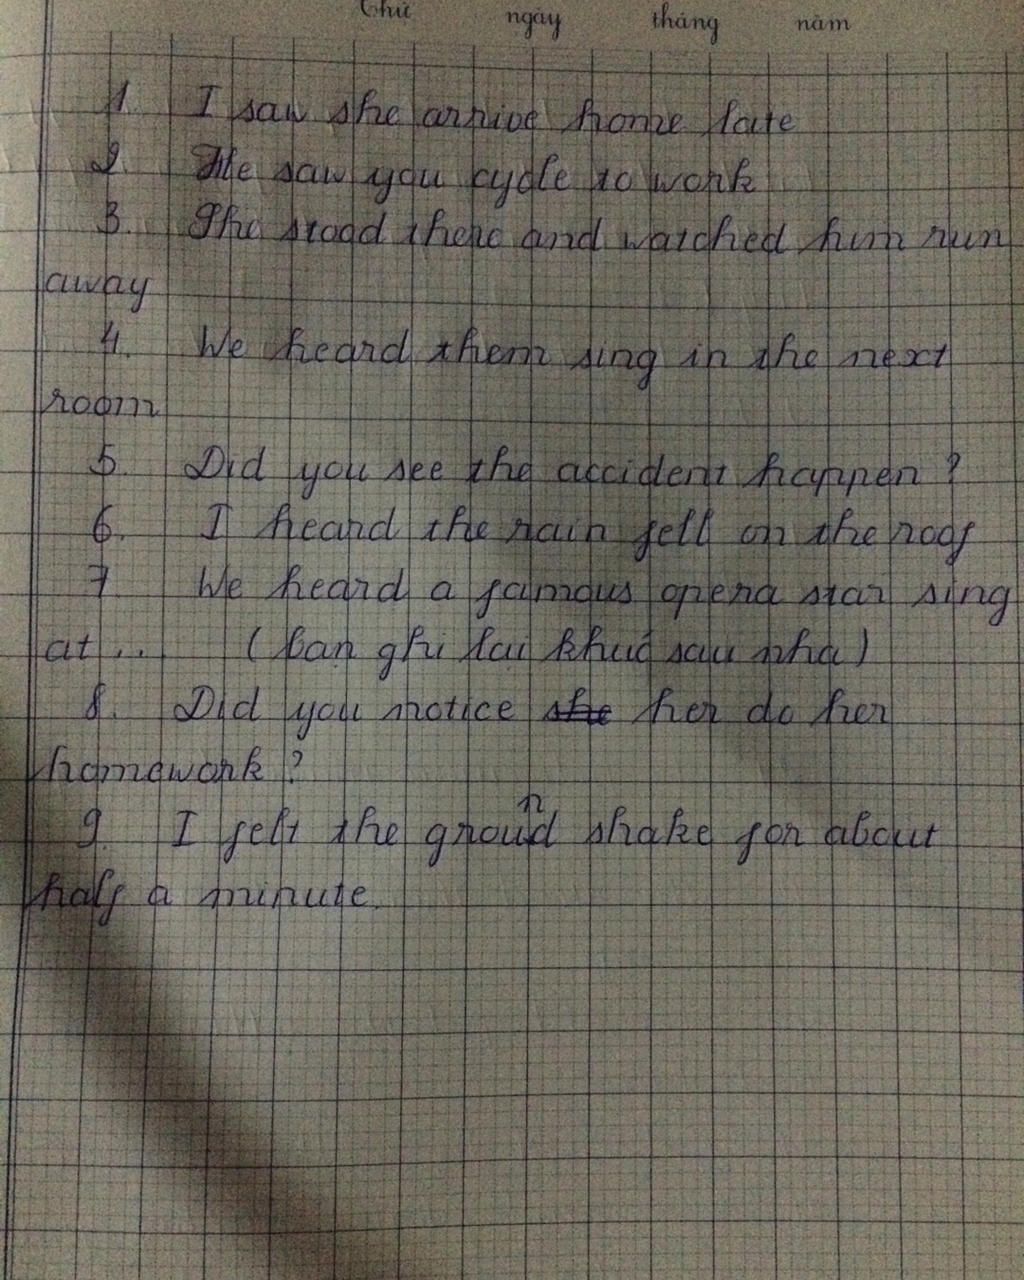 Thứ ngày tháng năm
1. I saw she arrive home late
2. He saw you cycle to work
3. She stood there and watched him run
away
4. We heard them sing in the next
room
5. Did you see the accident happen ?
6. I heard the rain fell on the roof
7 We heard a famous opera star sing
at ... ( bạn ghi lại khúc sau nha )
8. Did you notice she her do her
homework ?
9. I felt the ground shake for about
half a minute.